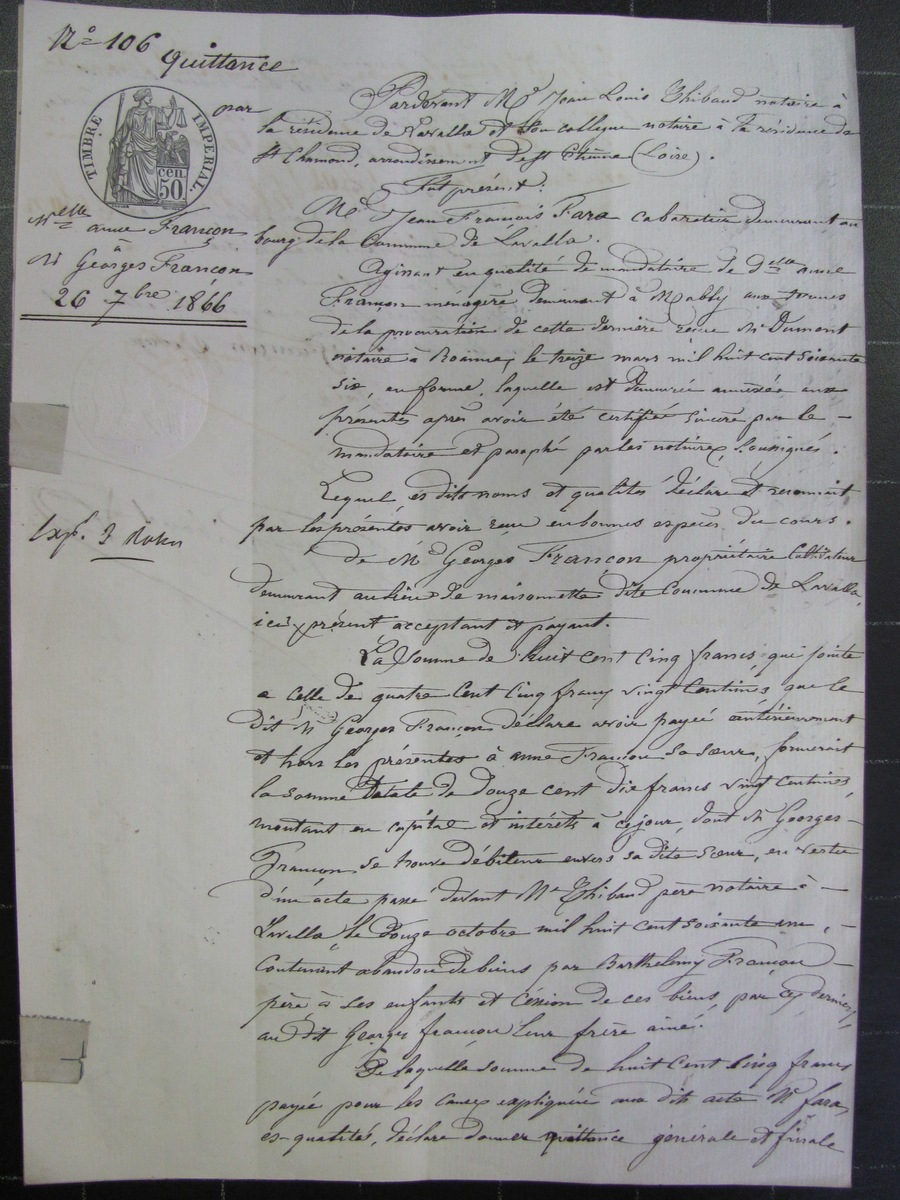 N° 106
Quittance
par
TIMBRE IMPÉRIAL
50 cen
Melle anne Françon
à
Mr Georges Françon
26 7bre 1866
Expn. 3 Roles
Pardevant Me Jean Louis Thibaud notaire à
la résidence de Lavalla et son collegue notaire à la résidence de
St Chamond, arrondissement de St Etienne (Loire).
Fut présent:
Mr Jean François Fara cabaretier demeurant au
bourg de la Commune de Lavalla.
Agissant en qualité de mandataire de delle anne
Françon ménagère demeurant à Mably aux termes
de la procuration de cette dernière recue Me Dumont
notaire à Roanne, le treize mars mil huit cent soixante
six, en forme, laquelle est demeurée annexée aux
présentes après avoir été certifiée sincere par le –
mandataire et paraphé par les notaires soussignés.
Lequel es dits noms et qualités déclare et reconnait
par les présentes avoir recu en bonnes especes du cours.
de Mr Georges Françon propriétaire cultivateur
demeurant au lieu de maisonnette dite Commune de Lavalla,
ici present acceptant et payant.
La Somme de huit cent cinq francs qui jointe
a celle de quatre cent cinq francs vingt centimes que le
dit Mr Georges Françon déclare avoir payée antérieurement
et hors les présentes à anne Françon sa sœur, formerait
la somme totale de douze cent dix francs vingt centimes,
montant en capital et intérêts à ce jour, dont Mr Georges –
Françon se trouve débiteur envers sa dite sœur, en vertu
d'un acte passé devant Me Thibaud père notaire à –
Lavalla, le douze octobre mil huit cent soixante un, –
Contenant abandon de biens par Barthelemy Françon –
père à ses enfants et cession de ces biens, par ces derniers,
au dit Georges françon leur frère ainé.
De laquelle somme de huit cent cinq francs
payée pour les causes expliquées aux dits acte Mr fara,
es-qualités, déclare donner quittance générale et finale